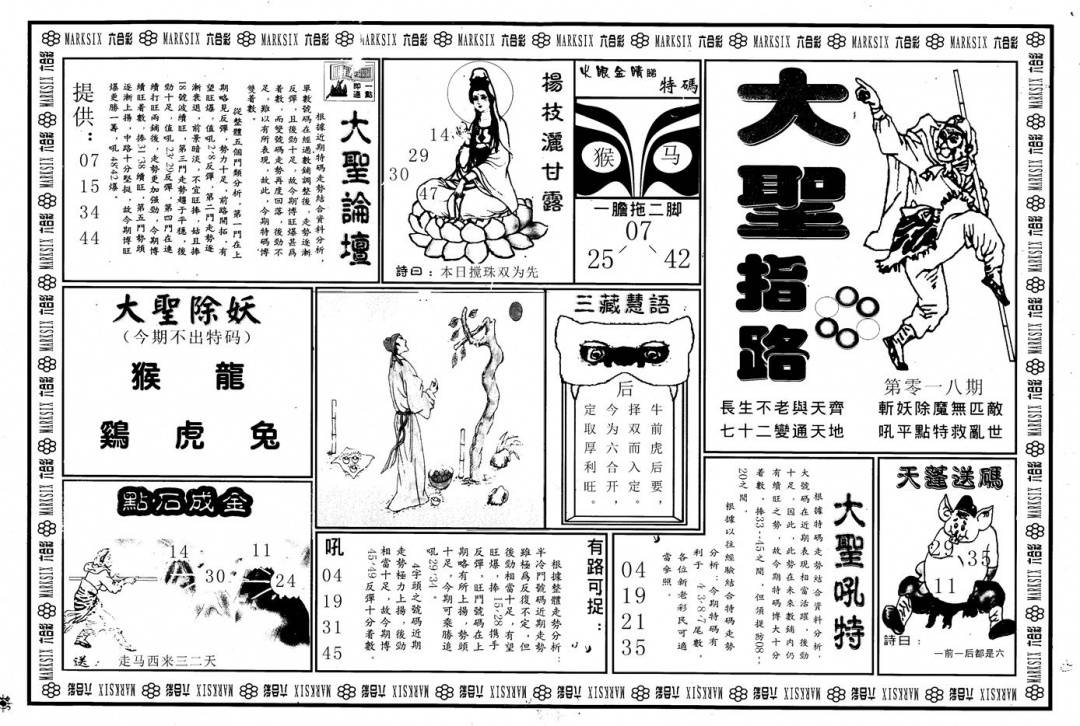 MARKSIX 六合彩
大聖指路
第零一八期
長生不老與天齊
七十二變通天地
斬妖除魔無匹敵
吼平點特救亂世
火眼金睛睇
特碼
猴
马
一膽拖二脚
07
25
42
楊枝灑甘露
14
29
30
47
詩曰：本日搅珠双为先
一點即通
大聖論壇
根據近期特碼走勢結合資料分析，
單數號碼在經過數鋪調整後，走勢逐漸
反彈，且後勁十足，故今期博旺爆甚爲
着數，而雙號碼走勢再度回落，後勁不
足，雖以有所表現，故此，今期特碼博
雙着數。
從整體五個門類分析，第一門在上
期略見反彈，勢力十足，前路開拓，有
望旺爆，值吼2·8反彈，第二門走勢逐
漸衰退，前景暗淡，不宜旺捧，姑且捧
18號波續旺，第三門走勢趨于平穩，後
勁十足，值吼23·29反彈，第四門在連
續打旺兩鋪後，走勢更加强勁，今期博
續旺着數，捧31·38續旺，第五門勢頭
逐漸上揚，中路十分堅挺，故今期博旺
爆更勝一籌，吼48·42爆。
提供：
07
15
34
44
大聖除妖
（今期不出特码）
猴 龍
鷄 虎 兔
三藏慧語
后
牛前虎后要，
择双而入定。
今为六合开，
定取厚利旺。
點石成金
14
11
30
24
送：走马西来三二天
有路可捉：
根據整體走勢分析：
半冷門號碼近期走勢
雖極爲反復不定，但
後勁相當十足，有望
旺爆，捧15·28携手
反彈，旺門號碼在上
期略有所上揚，勢頭
十足，今期可乘勝追
吼29·34。
4字頭之號碼近期
走勢極力上揚，後勁
相當十足，故今期博
45·49反彈十分着數。
吼
04
19
31
45
大聖吼特
根據特碼走勢結合資料分析，
大號碼在近期表現相當活躍，後勁
十足，因此，此勢在未來數鋪内仍
有續旺之勢，故今期特碼博大十分
着數，捧33--45之間，但須提防08--
20之間。
根據以往經驗結合特碼走勢
分析：今期特碼有
利于4·3·8·7尾數，
各位新老彩民可適
當參照。
04
19
21
35
天蓬送碼
29
35
11
詩曰：
一前一后都是六